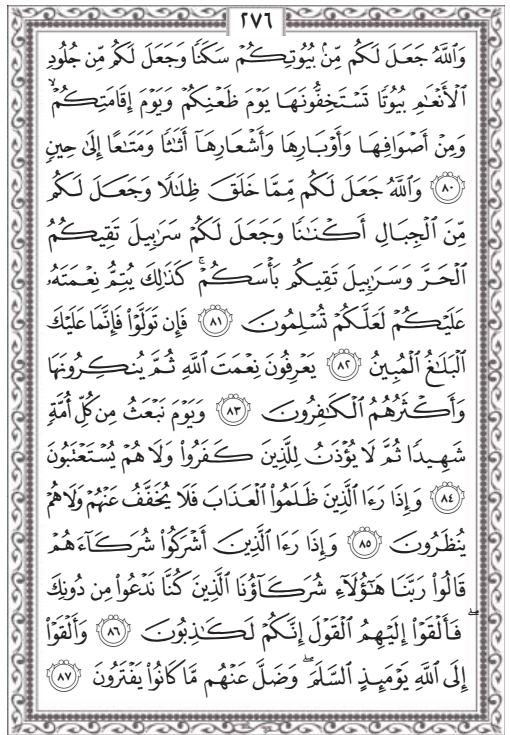 ٢٧٦
وَٱللَّهُ جَعَلَ لَكُم مِّنۢ بُيُوتِكُمْ سَكَنًا وَجَعَلَ لَكُم مِّن جُلُودِ
ٱلْأَنْعَٰمِ بُيُوتًا تَسْتَخِفُّونَهَا يَوْمَ ظَعْنِكُمْ وَيَوْمَ إِقَامَتِكُمْ ۙ
وَمِنْ أَصْوَافِهَا وَأَوْبَارِهَا وَأَشْعَارِهَآ أَثَٰثًا وَمَتَٰعًا إِلَىٰ حِينٍ
﴿٨٠﴾ وَٱللَّهُ جَعَلَ لَكُم مِّمَّا خَلَقَ ظِلَٰلًا وَجَعَلَ لَكُم
مِّنَ ٱلْجِبَالِ أَكْنَٰنًا وَجَعَلَ لَكُمْ سَرَٰبِيلَ تَقِيكُمُ
ٱلْحَرَّ وَسَرَٰبِيلَ تَقِيكُم بَأْسَكُمْ ۚ كَذَٰلِكَ يُتِمُّ نِعْمَتَهُۥ
عَلَيْكُمْ لَعَلَّكُمْ تُسْلِمُونَ ﴿٨١﴾ فَإِن تَوَلَّوْا۟ فَإِنَّمَا عَلَيْكَ
ٱلْبَلَٰغُ ٱلْمُبِينُ ﴿٨٢﴾ يَعْرِفُونَ نِعْمَتَ ٱللَّهِ ثُمَّ يُنكِرُونَهَا
وَأَكْثَرُهُمُ ٱلْكَٰفِرُونَ ﴿٨٣﴾ وَيَوْمَ نَبْعَثُ مِن كُلِّ أُمَّةٍ
شَهِيدًا ثُمَّ لَا يُؤْذَنُ لِلَّذِينَ كَفَرُوا۟ وَلَا هُمْ يُسْتَعْتَبُونَ
﴿٨٤﴾ وَإِذَا رَءَا ٱلَّذِينَ ظَلَمُوا۟ ٱلْعَذَابَ فَلَا يُخَفَّفُ عَنْهُمْ وَلَا هُمْ
يُنظَرُونَ ﴿٨٥﴾ وَإِذَا رَءَا ٱلَّذِينَ أَشْرَكُوا۟ شُرَكَآءَهُمْ
قَالُوا۟ رَبَّنَا هَٰٓؤُلَآءِ شُرَكَآؤُنَا ٱلَّذِينَ كُنَّا نَدْعُوا۟ مِن دُونِكَ
ۖ فَأَلْقَوْا۟ إِلَيْهِمُ ٱلْقَوْلَ إِنَّكُمْ لَكَٰذِبُونَ ﴿٨٦﴾ وَأَلْقَوْا۟
إِلَى ٱللَّهِ يَوْمَئِذٍ ٱلسَّلَمَ ۖ وَضَلَّ عَنْهُم مَّا كَانُوا۟ يَفْتَرُونَ ﴿٨٧﴾